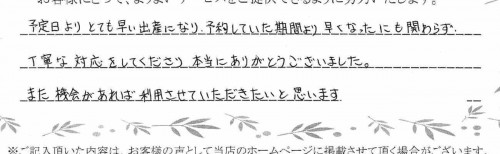 お客様にとって、よりよいサービスをご提供できるように努力いたします。
予定日よりとても早い出産になり、予約していた期間より早くなったにも関わらず、
丁寧な対応をしてくださり本当にありがとうございました。
また機会があれば利用させていただきたいと思います
※ご記入頂いた内容は、お客様の声として当店のホームページに掲載させて頂く場合がございます。